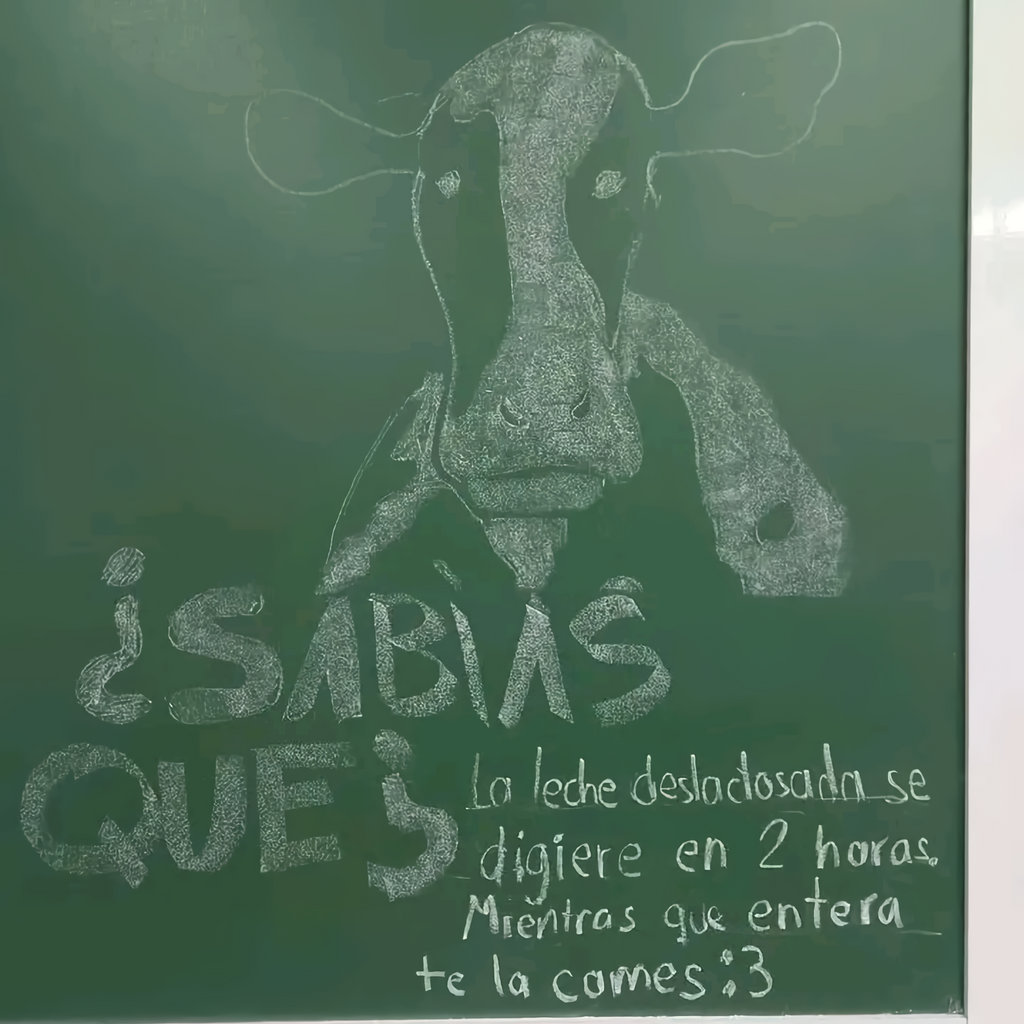 ¿SABÍAS
QUE¿
La leche deslactosada se
digiere en 2 horas.
Mientras que entera
te la comes :3